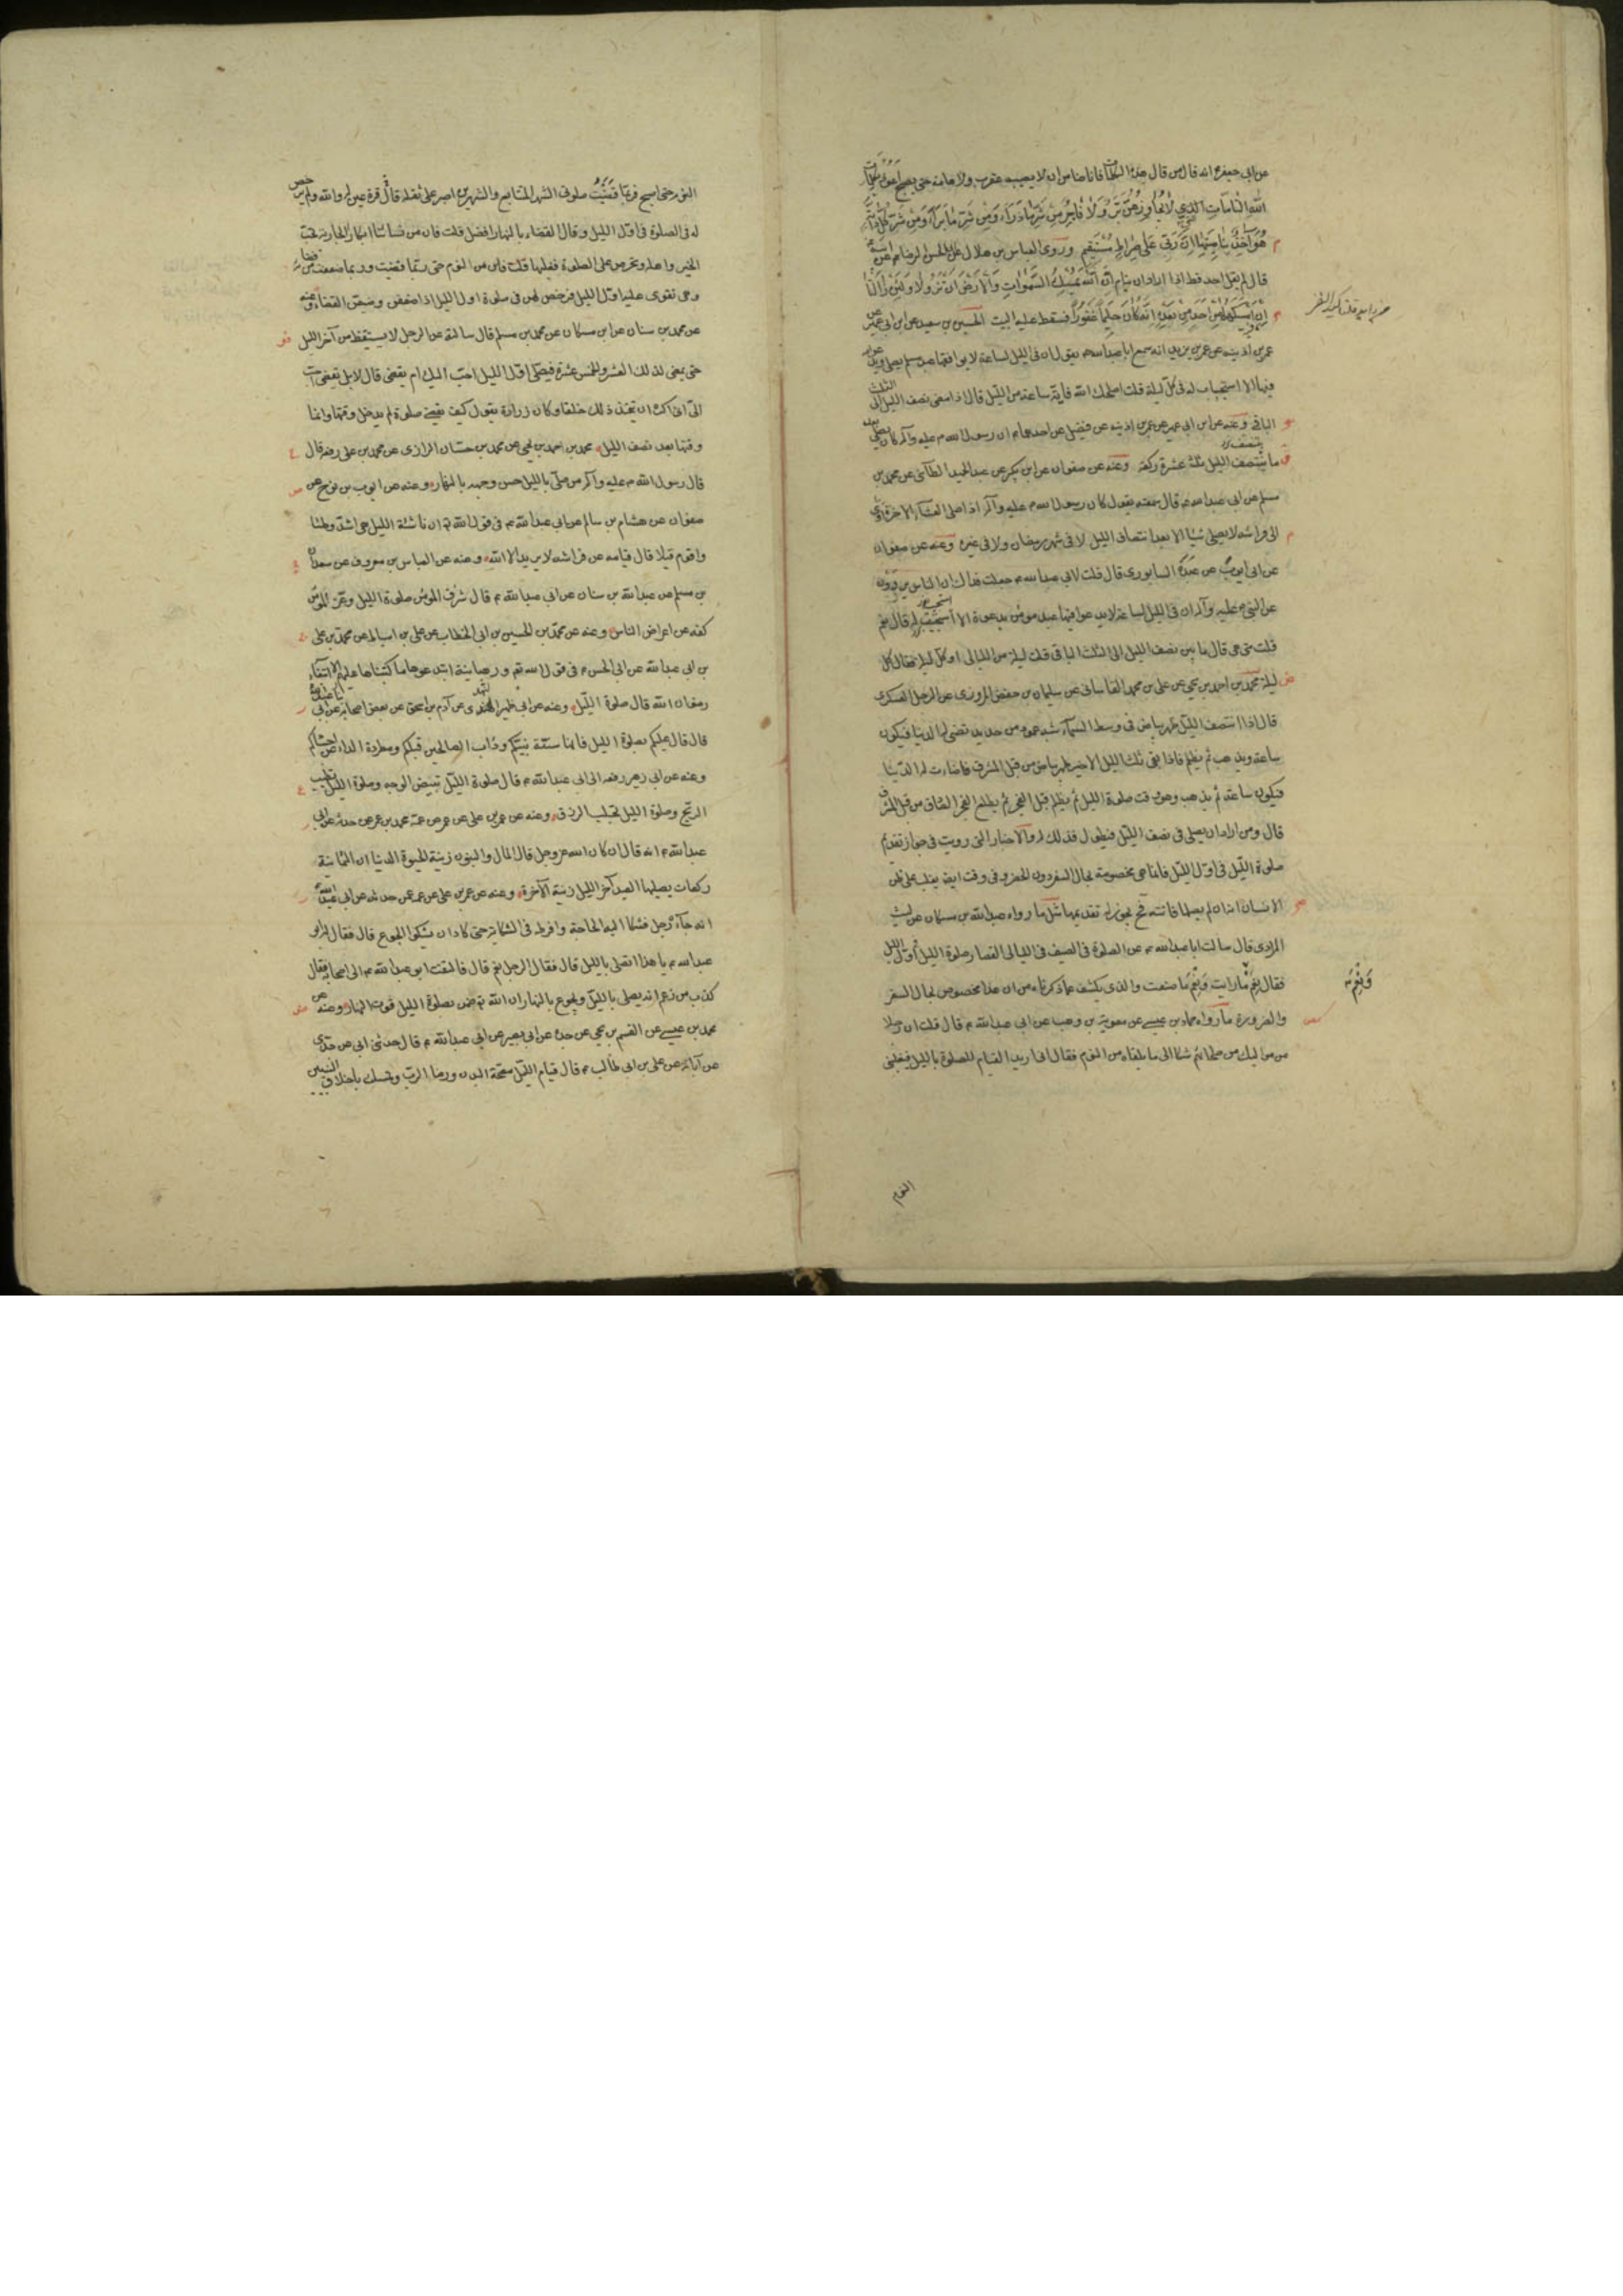 عن ابي جعفر ع انه قال من قال هذه الكلمات فانا ضامن ان لا يصيبه عقرب ولا هامة حتى يصبح اعوذ بكلمات
الله التامات التي لا يجاوزهن بر ولا فاجر من شر ما ذرأ ومن شر ما برأ ومن شر كل دابة
هو آخذ بناصيتها ان ربي على صراط مستقيم وروى العباس بن هلال عن ابي الحسن الرضا ع عن ابيه ع
قال لم يقل احد قط اذا اراد ان ينام ان الله يمسك السموات والارض ان تزولا ولئن زالتا
ان امسكهما من احد من بعده انه كان حليما غفورا فسقط عليه البيت الحسين بن سعيد عن ابن ابي عمير عن
عمر بن اذينه عن عمر بن يزيد انه سمع ابا عبد الله ع يقول ان في الليل لساعة لا يوافقها عبد مسلم يصلي ويدعو الله
فيها الا استجاب له في كل ليلة قلت اصلحك الله فاية ساعة من الليل قال اذا مضى نصف الليل الى الثلث
الباقي وعنه عن ابن ابي عمير عن عمر بن اذينه عن فضيل عن احدهما ع ان رسول الله ص عليه وآله كان يصلي بعد
ما ينتصف الليل ثلث عشرة ركعة وعنه عن صفوان عن ابن بكير عن عبد الحميد الطائي عن محمد بن
مسلم عن ابي عبد الله ع قال سمعته يقول كان رسول الله ص عليه وآله اذا صلى العشاء الآخرة آوى
الى فراشه لا يصلي شيئا الا بعد انتصاف الليل لا في شهر رمضان ولا في غيره وعنه عن صفوان
عن ابي ايوب عن عبدة السابوري قال قلت لابي عبد الله ع جعلت فداك ان الناس يروون
عن النبي ص عليه وآله ان في الليل لساعة لا يدعو فيها عبد مومن بدعوة الا استجيب له قال نعم
قلت متى هي قال ما بين نصف الليل الى الثلث الباقي قلت ليلة من الليالي او كل ليلة فقال كل
ليلة محمد بن احمد بن يحيى عن علي بن محمد القاساني عن سليمان بن حفص المروزي عن الرجل العسكري
قال اذا انتصف الليل ظهر بياض في وسط السماء شبه عمود من حديد تضئ لها الدنيا فيكون
ساعة ويذهب ثم يظلم فاذا بقي ثلث الليل الاخير ظهر بياض من قبل المشرق فاضاءت له الدنيا
فيكون ساعة ثم يذهب وهو وقت صلوة الليل ثم يظلم قبل الفجر ثم يطلع الفجر الصادق من قبل المشرق
قال ومن اراد ان يصلي في نصف الليل فيطول فذلك له والاخبار التي رويت في جواز تقديم
صلوة الليل في اول الليل فانما هي مخصوصة بحال السفر دون الحضر وفي وقت ايضا يغلب على ظن
الانسان انه ان لم يصلها فاتته فح يجوز له تقديمها مثل ما رواه عبد الله بن مسكان عن ليث
المرادي قال سالت ابا عبد الله ع عن الصلوة في الصيف في الليالي القصار صلوة الليل في اول الليل
فقال نعم ما رايت ونعم ما صنعت والذي يكشف عما ذكرناه من ان هذا مخصوص بحال السفر
والضرورة ما رواه حماد بن عيسى عن معوية بن وهب عن ابي عبد الله ع قال قلت ان رجلا
من مواليك من صلحائهم شكا الى ما يلقاه من النوم فقال اني اريد القيام للصلوة بالليل فيغلبني
ونعم
النوم
النوم حتى اصبح فربما قضيت صلوتي الشهر المتتابع والشهرين اصبر على ثقله قال قرة عين له والله ولم يرخص
له في الصلوة في اول الليل وقال القضاء بالنهار افضل قلت فان من نسائنا ابكارا الجارية تحب
الخير واهله وتحرص على الصلوة فيغلبها النوم حتى ربما قضيت وربما ضعفت عن قضائه
وهي تقوى عليه اول الليل فرخص لهن في صلوة اول الليل اذا ضعفن وضيعن القضاء وعنه
عن محمد بن سنان عن ابن مسكان عن محمد بن مسلم قال سالته عن الرجل لا يستيقظ من آخر الليل
حتى يمضي لذلك العشر والخمس عشرة فيصلي اول الليل احب اليك ام يقضي قال لا بل يقضي احب
الي اني اكره ان يتخذ ذلك خلقا وكان زرارة يقول كيف يقضي صلوة لم يدخل وقتها وانما
وقتها بعد نصف الليل محمد بن احمد بن يحيى عن محمد بن حسان الرازي عن محمد بن علي رفعه قال
قال رسول الله ص عليه وآله من صلى بالليل حسن وجهه بالنهار وعنه عن ايوب بن نوح عن
صفوان عن هشام بن سالم عن ابي عبد الله ع في قول الله تع ان ناشئة الليل هي اشد وطئا
واقوم قيلا قال قيامه عن فراشه لا يريد الا الله وعنه عن العباس بن معروف عن سعدان
بن مسلم عن عبد الله بن سنان عن ابي عبد الله ع قال شرف المومن صلوة الليل وعز المومن
كفه عن اعراض الناس وعنه عن محمد بن الحسين بن ابي الخطاب عن علي بن اسباط عن محمد بن علي
بن ابي عبد الله عن ابي الحسن ع في قول الله تع ورهبانية ابتدعوها ما كتبناها عليهم الا ابتغاء
رضوان الله قال صلوة الليل وعنه عن ابي زهير النهدي عن آدم بن اسحق عن بعض اصحابه عن ابي عبد الله ع
قال قال عليكم بصلوة الليل فانها سنة نبيكم ودأب الصالحين قبلكم ومطردة الداء عن اجسادكم
وعنه عن ابي زهير رفعه الى ابي عبد الله ع قال صلوة الليل تبيض الوجه وصلوة الليل تطيب
الريح وصلوة الليل تجلب الرزق وعنه عن عمر بن علي بن عمر عن عمه محمد بن عمر عن حدثه عن ابي
عبد الله ع انه قال ان كان الله عز وجل قال المال والبنون زينة الحيوة الدنيا ان الثمانية
ركعات يصليها العبد آخر الليل زينة الآخرة وعنه عن عمر بن علي عن عمه عمن حدثه عن ابي عبد الله
انه جاءه رجل فشكا اليه الحاجة وافرط في الشكاية حتى كاد ان يشكو الجوع قال فقال له ابو
عبد الله ع يا هذا اتصلي بالليل قال فقال الرجل نعم قال فالتفت ابو عبد الله ع الى اصحابه فقال
كذب من زعم انه يصلي بالليل ويجوع بالنهار ان الله تع ضمن بصلوة الليل قوت النهار وعنه عن
محمد بن عيسى عن القسم بن يحيى عن جده عن ابي بصير عن ابي عبد الله ع قال حدثني ابي عن جدي
عن آبائه عن علي بن ابي طالب ع قال قيام الليل مصحة البدن ورضا الرب وتمسك باخلاق النبيين